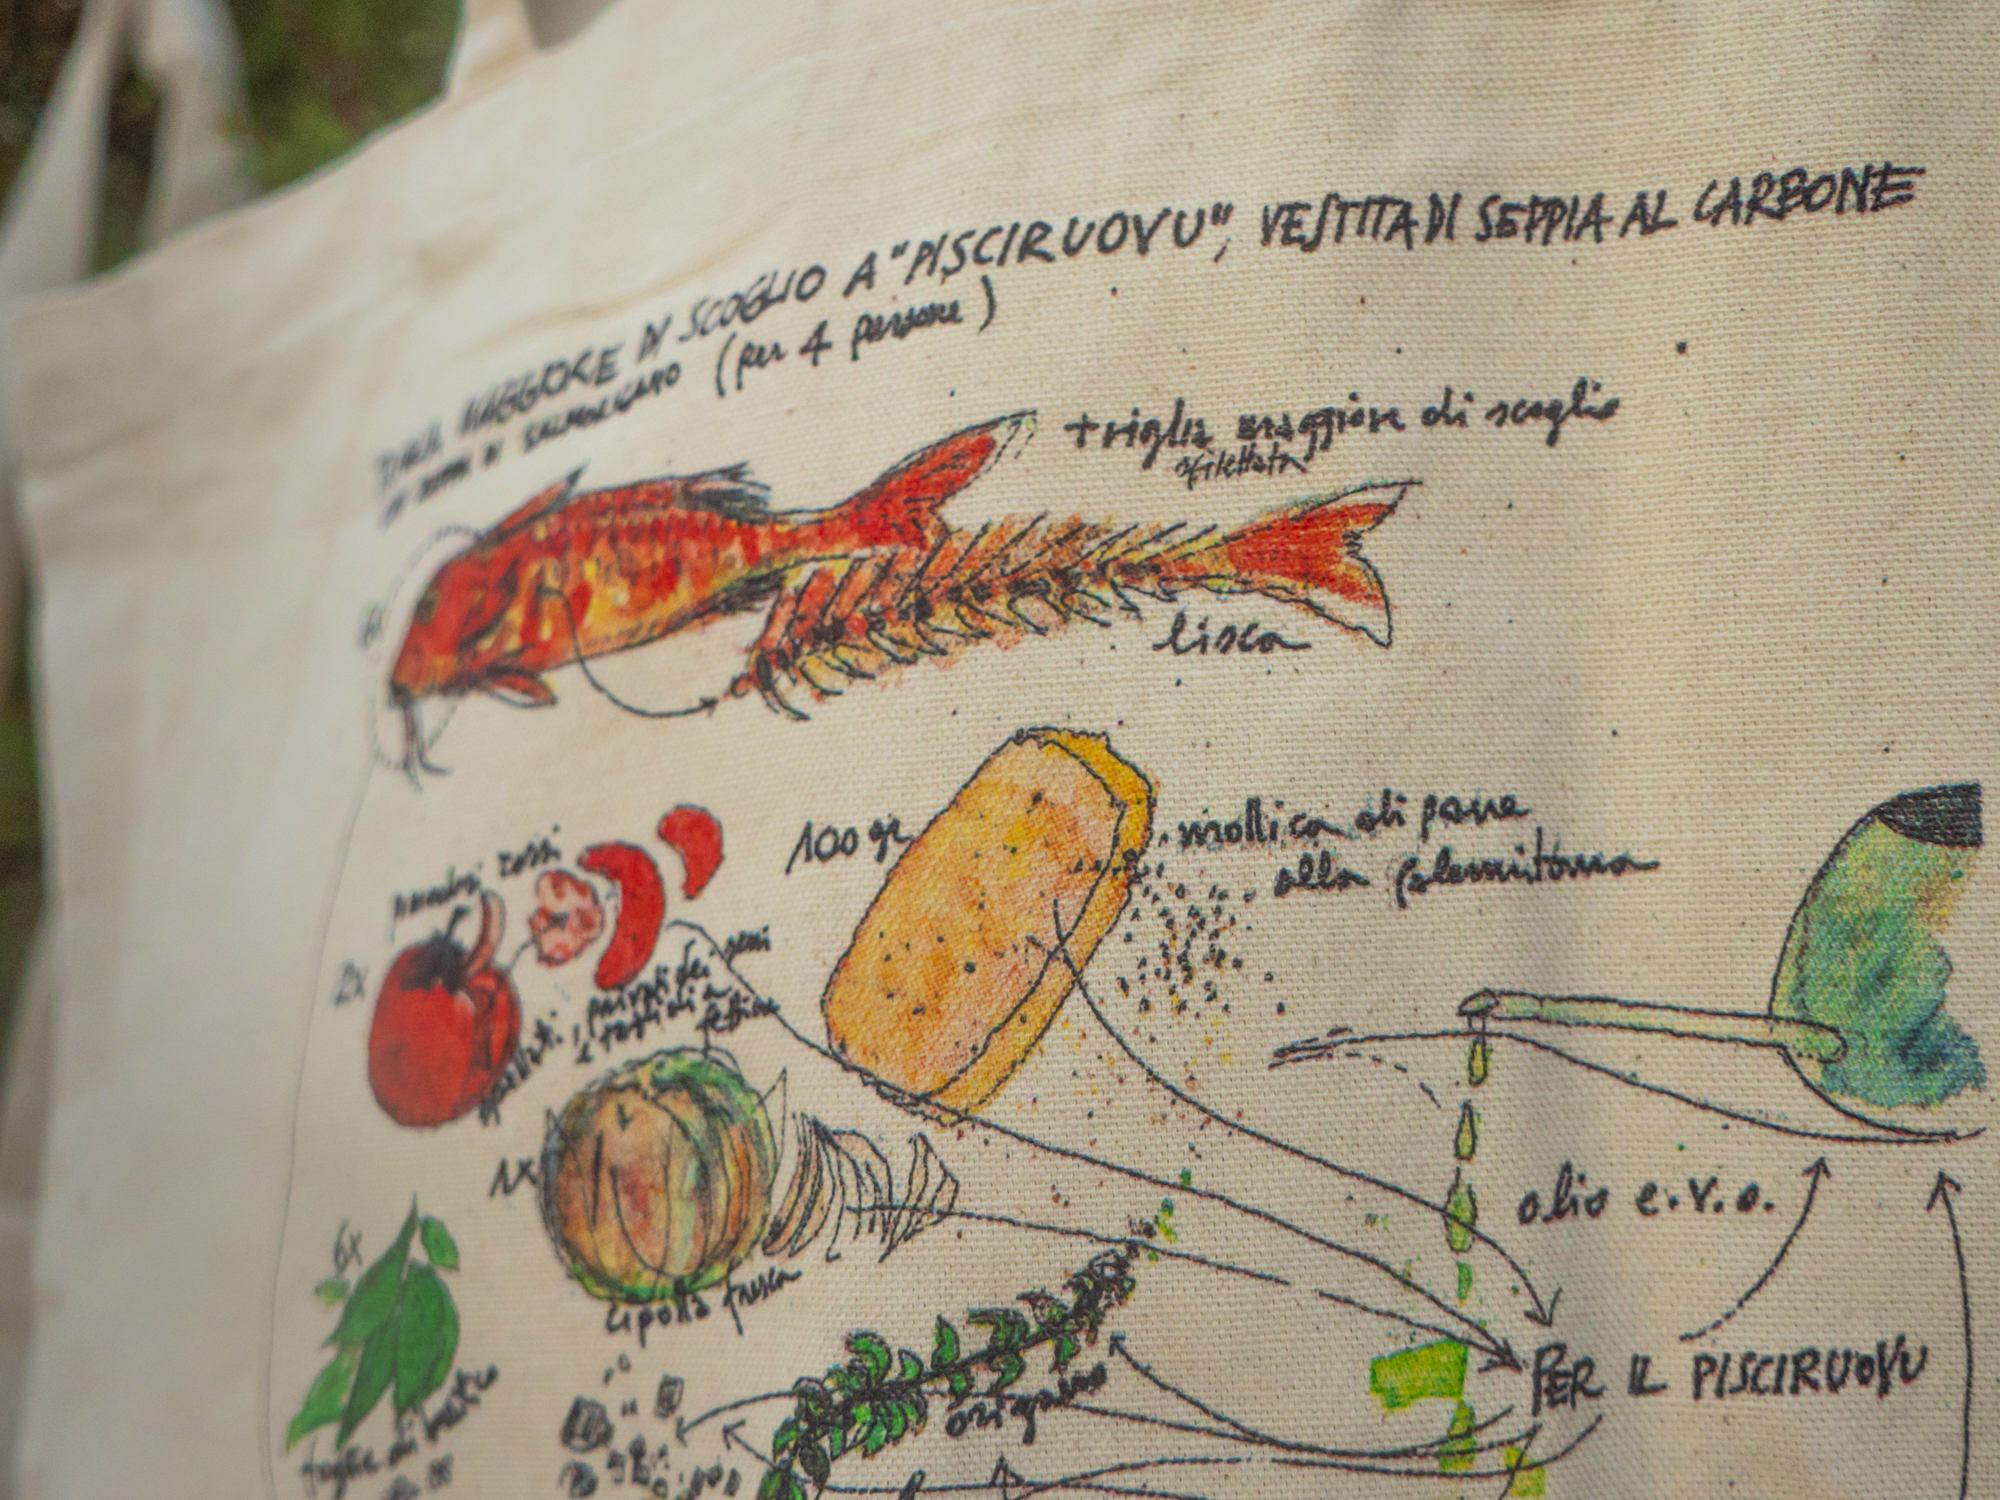 TRIGLIA MAGGIORE DI SCOGLIO A "PISCIRUOVU", VESTITA DI SEPPIA AL CARBONE
IN ZUPPA DI SALMORIGANO (per 4 persone)
triglia maggiore di scoglio
sfilettata
lisca
100 gr.
mollica di pane
alla palermitana
pomodori rossi
2x
spellati, privati dei semi
e tagliati a
fettine
1x
cipolla fresca
olio e.v.o.
6x
foglie di
origano
PER IL PISCIRUOVU